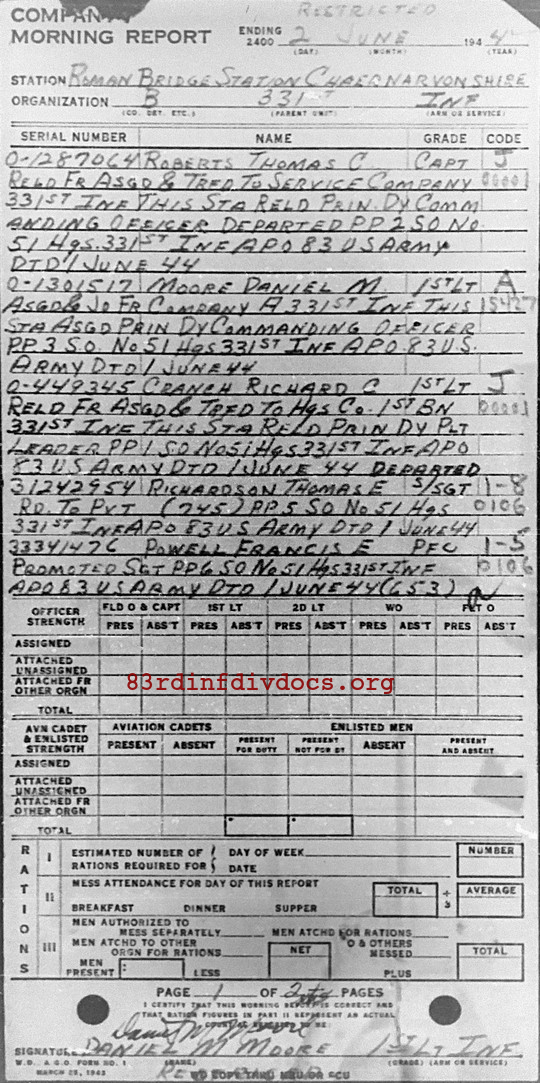 RESTRICTED
COMPANY
MORNING REPORT ENDING 2400 2 JUNE 1944
(DAY) (MONTH) (YEAR)
STATION ROMAN BRIDGE STATION CHAERNARVONSHIRE
ORGANIZATION B 331ST INF
(CO. DET. ETC.) (PARENT UNIT) (ARM OR SERVICE)
SERIAL NUMBER NAME GRADE CODE
O-1287064 ROBERTS THOMAS C CAPT J
RELD FR ASGD & TRFD TO SERVICE COMPANY 00001
331ST INF THIS STA RELD PRIN. DY COMM
ANDING OFFICER DEPARTED PP 2 SO NO
51 HQS. 331ST INF APO 83 US ARMY
DTD 1 JUNE 44
O-1301517 MOORE DANIEL M. 1ST LT A
ASGD & JD FR COMPANY A 331ST INF THIS 15427
STA ASGD PRIN DY COMMANDING OFFICER
PP 3 S.O. NO 51 HQS 331ST INF APO. 83 U.S.
ARMY DTD 1 JUNE 44
O-449345 CRANCH RICHARD C 1ST LT J
RELD FR ASGD & TRFD TO HQS CO. 1ST BN 00001
331ST INF THIS STA RELD PRIN DY PLT
LEADER PP 1 SO NO 51 HQS 331ST INF APO
83 US ARMY DTD 1 JUNE 44 DEPARTED
31242954 RICHARDSON THOMAS E S/SGT 1-8
RD. TO PVT (745) PP 5 SO NO 51 HQS 0106
331ST INF APO 83 US ARMY DTD 1 JUNE 44
33341476 POWELL FRANCIS E PFC 1-5
PROMOTED SGT PP 6 SO NO 51 HQS 331ST INF 0106
APO 83 US ARMY DTD 1 JUNE 44 (653)
OFFICER STRENGTH FLD O & CAPT 1ST LT 2D LT WO FLT O
PRES ABS'T PRES ABS'T PRES ABS'T PRES ABS'T PRES ABS'T
ASSIGNED
ATTACHED UNASSIGNED
ATTACHED FR OTHER ORGN
83rdinfdivdocs.org
TOTAL
AVN CADET & ENLISTED STRENGTH AVIATION CADETS ENLISTED MEN
PRESENT ABSENT PRESENT FOR DUTY PRESENT NOT FOR DY ABSENT PRESENT AND ABSENT
ASSIGNED
ATTACHED UNASSIGNED
ATTACHED FR OTHER ORGN
TOTAL
RATIONS
I ESTIMATED NUMBER OF RATIONS REQUIRED FOR DAY OF WEEK DATE NUMBER
II MESS ATTENDANCE FOR DAY OF THIS REPORT TOTAL ÷ 3 AVERAGE
BREAKFAST DINNER SUPPER
III MEN AUTHORIZED TO MESS SEPARATELY MEN ATCHD FOR RATIONS
MEN ATCHD TO OTHER ORGN FOR RATIONS NET O & OTHERS MESSED TOTAL
MEN PRESENT LESS PLUS
PAGE 1 OF PAGES
I CERTIFY THAT THIS MORNING REPORT IS CORRECT AND
THAT RATION FIGURES IN PART II REPRESENT AN ACTUAL
SIGNATURE DANIEL M MOORE 1ST LT INF
(NAME) (GRADE) (ARM OR SERVICE)
W.D., A.G.O. FORM NO. 1
MARCH 25, 1943